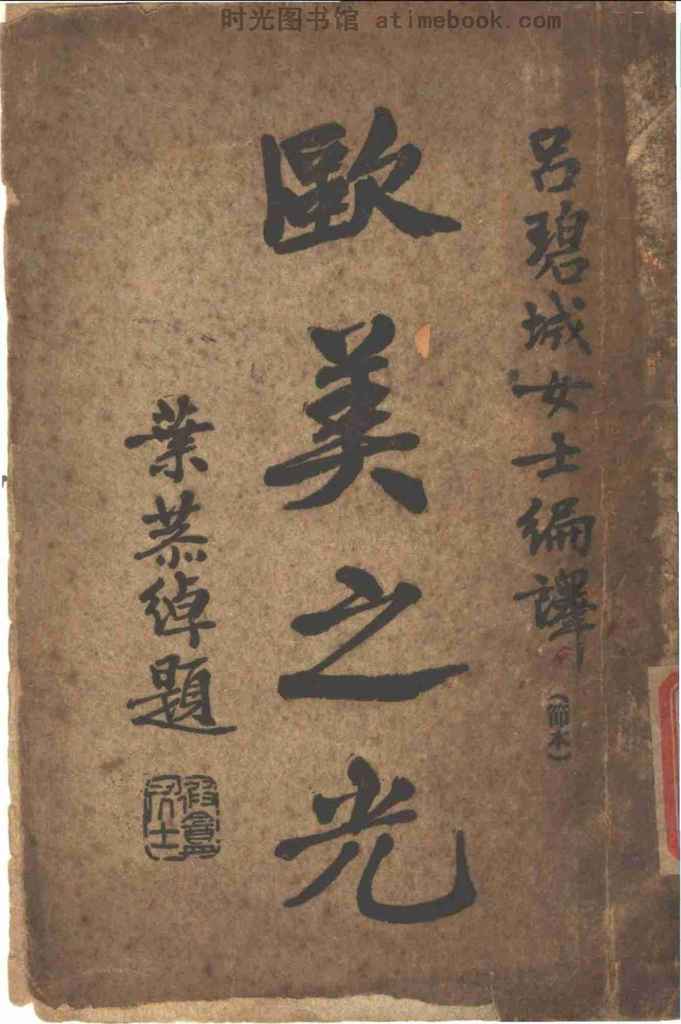 时光图书馆 atimebook.com
呂碧城女士編譯（節本）
歐美之光
葉恭綽題
遐盦居士